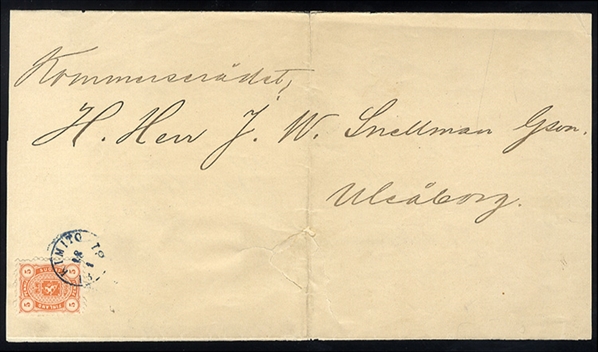 Kommerserådet,
H. Herr J. W. Snellman Gson.
Uleåborg.
KIMITO
18
1
5 5
5 5